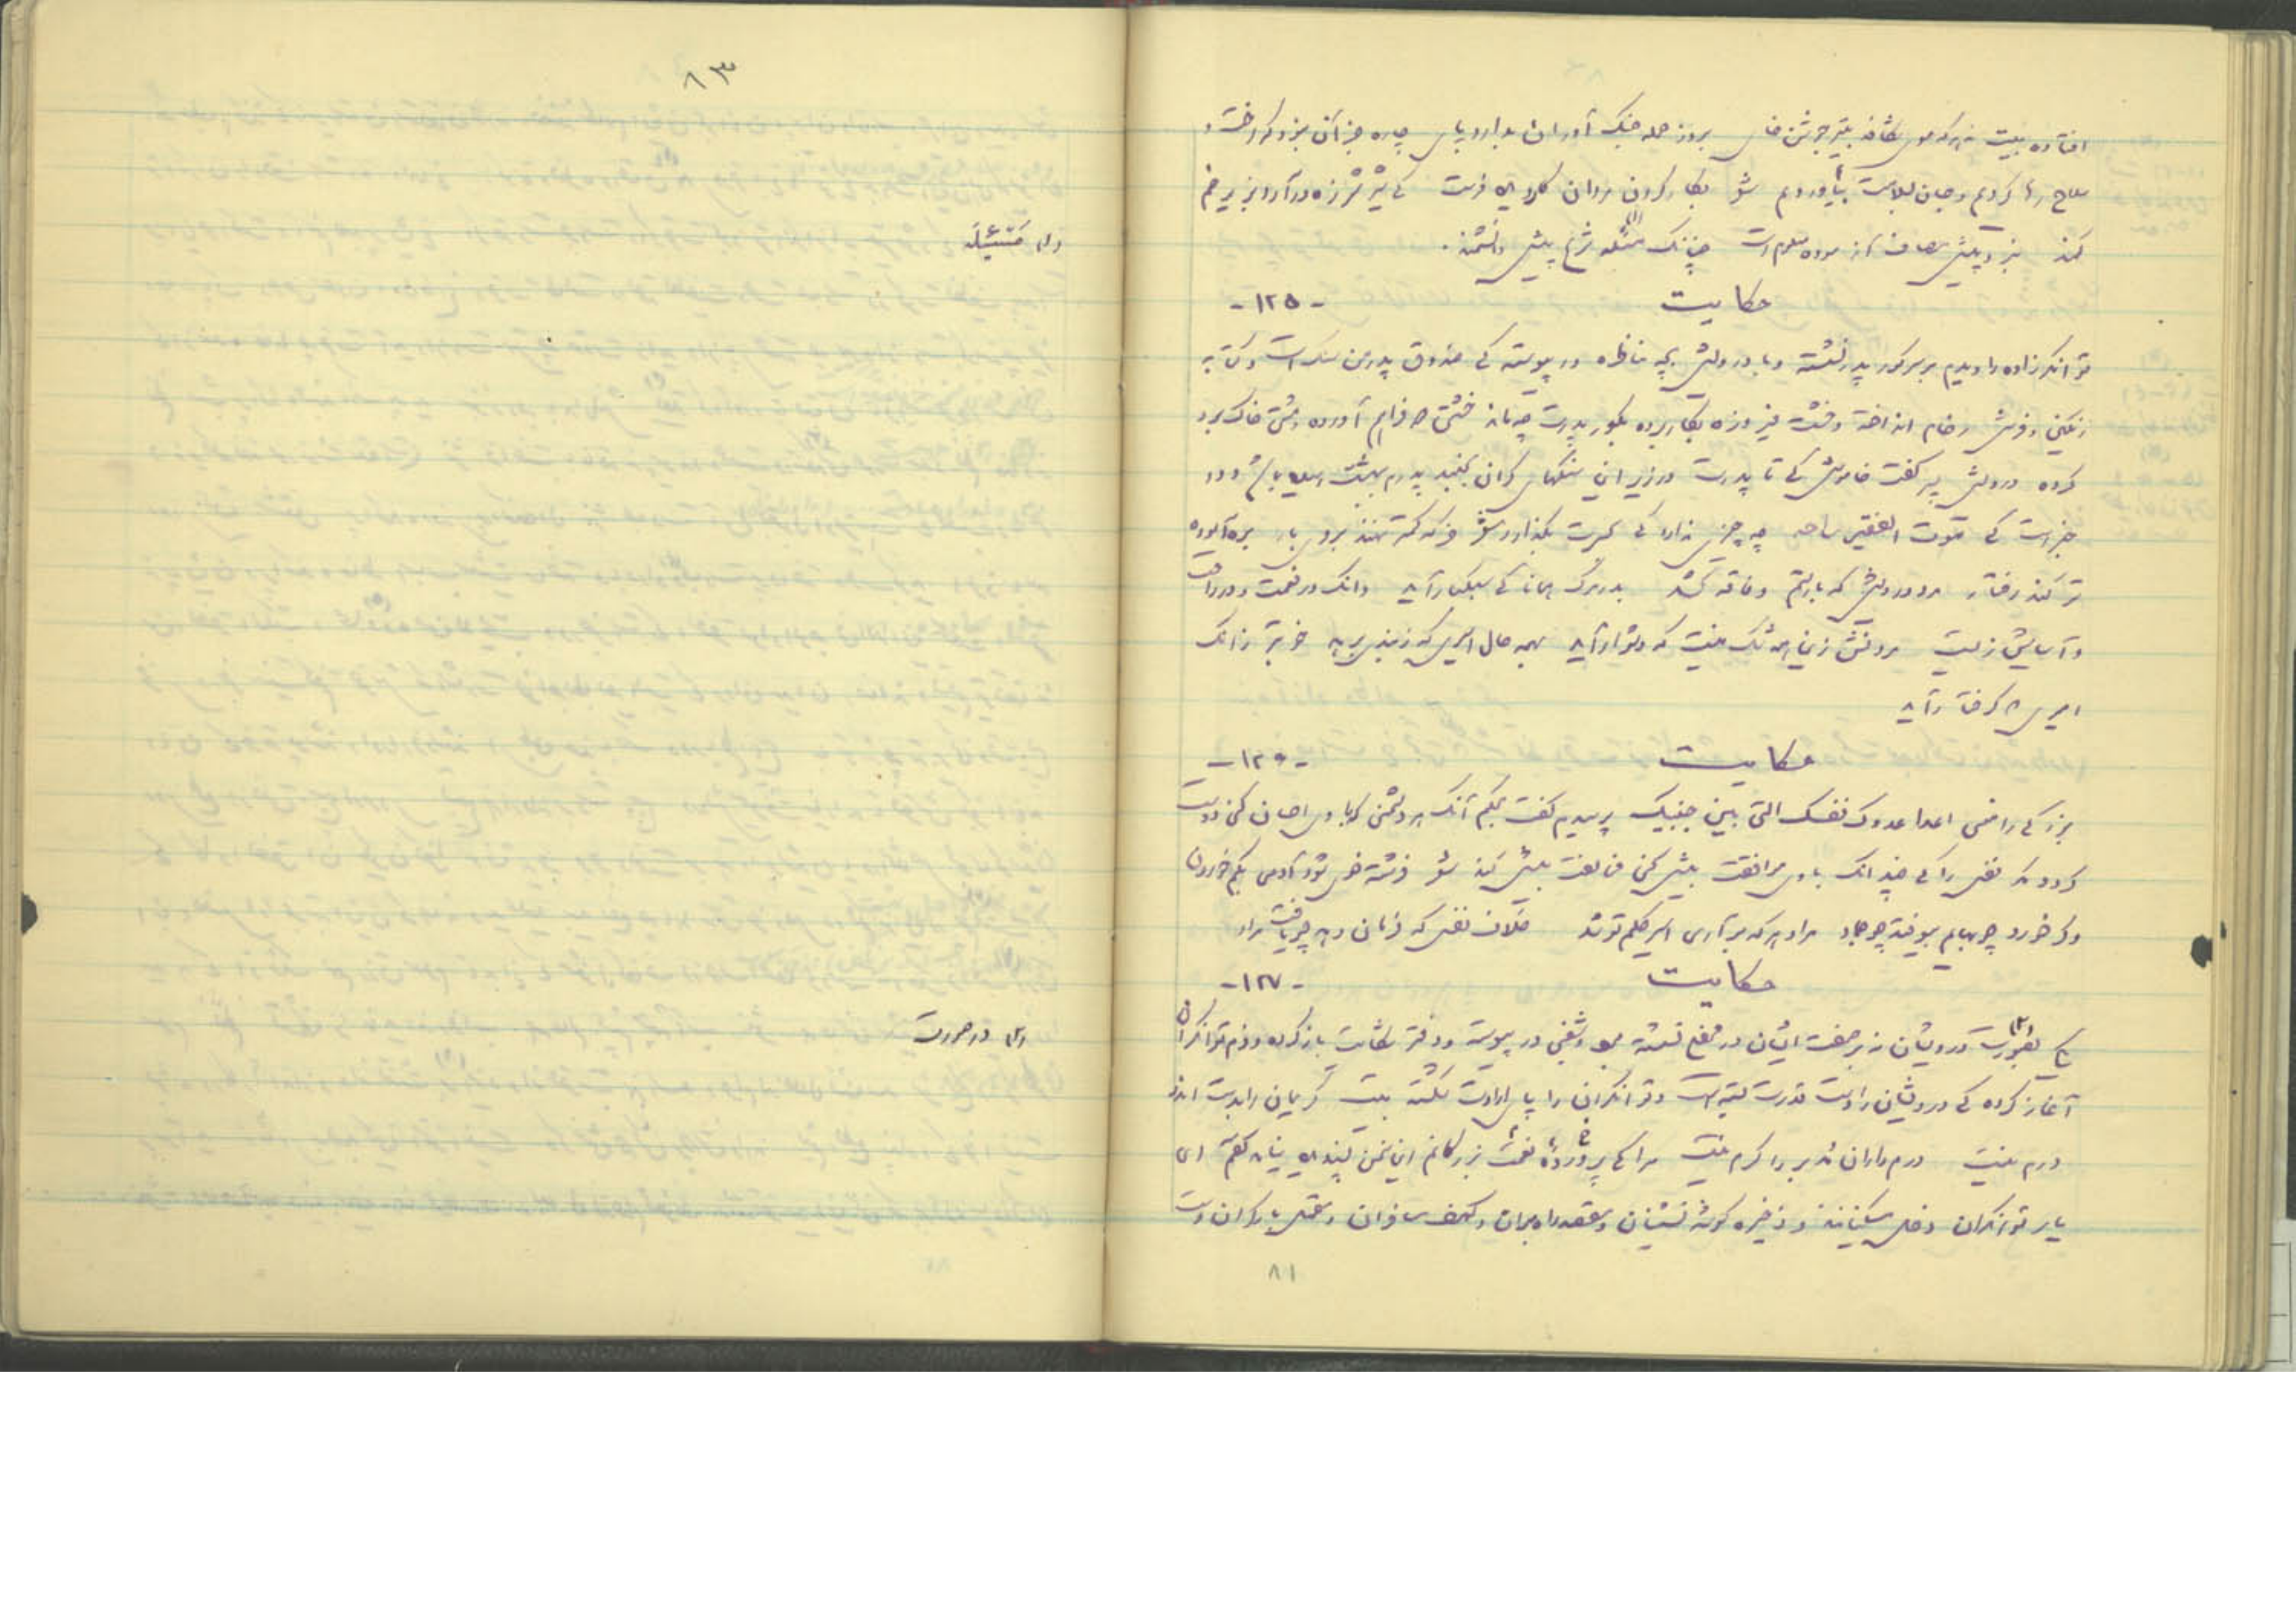 افتاده بیت نه هرکه موی شکافد بتیر جوشن خای بروز حمله جنگ آوران بدارد پای چاره جز آن نبود که رخت و
سلاح رها کردیم و جان بسلامت بیاوردیم شعر بکارکردن مردان کاردیده فرست کی شیر شرزه درآرد بزیر خم
کمند نبرد پیش مصاف آزموده معلومست چنانک مسئله شرع پیش دانشمند.
حکایت -۱۲۵-
توانگرزاده را دیدم بر سر گور پدر نشسته و با درویش بچه مناظره در پیوسته کی صندوق پدرمن سنگ است و کتابه
رنگین و فرش رخام انداخته و خشت فیروزه بکار برده بگور پدرت چه ماند خشتی دو فراهم آورده و مشتی خاک برو
کرده درویش پسر گفت خاموش کی تا پدرت در زیر این سنگهای گران بجنبد پدرم ببهشت رسیده باشد و در
خبر است کی موت الفقیر راحه چه چیزی ندارد کی بحسرت بگذارد شعر خر که کمتر نهند بروی بار بره آسوده
تر کند رفتار مرد درویش که بار ستم و فاقه کشد بدر مرگ همانا کی سبکبار آید وانک در نعمت و در راحت
و آسایش زیست مردنش زین همه شک نیست که دشوار آید بهمه حال اسیری که ز بندی برهد خوبتر زانک
امیری که گرفتار آید
حکایت -۱۲۶-
بزرگی را معنی اعدا عدوک نفسک التی بین جنبیک پرسیدم گفت بحکم آنک هر دشمن که با وی احسان کنی دوست
گردد مگر نفس را کی چندانک با وی موافقت بیش کنی مخالفت بیش کند شعر فرشته خوی شود آدمی بکم خوردن
وگر خورد چو بهایم بیوفتد چو جماد مراد هر که برآری اسیر حکم تو شد خلاف نفس که فرمان دهد چو یافت مراد
حکایت -۱۲۷-
یکی بصورت (۲) درویشان نه بر صفت ایشان در محفلی نشسته و شنعتی در پیوسته و دفتر شکایت باز کرده و ذم توانگران
آغاز کرده کی درویشان را دست قدرت بسته است و توانگران را پای ارادت شکسته بیت کریمان را بدست اندر
درم نیست درم داران را کرم نیست مرا کی پرورده نعمت بزرگانم این سخن پسندیده نیامد گفتم ای
یار توانگران دخل مسکینانند و ذخیره گوشه نشینان و مقصد راهبران و کهف مسافران و متحمل بار گران دست
۸۱
۸۳
(۱) مَسْئَلَه
(۲) در صورت